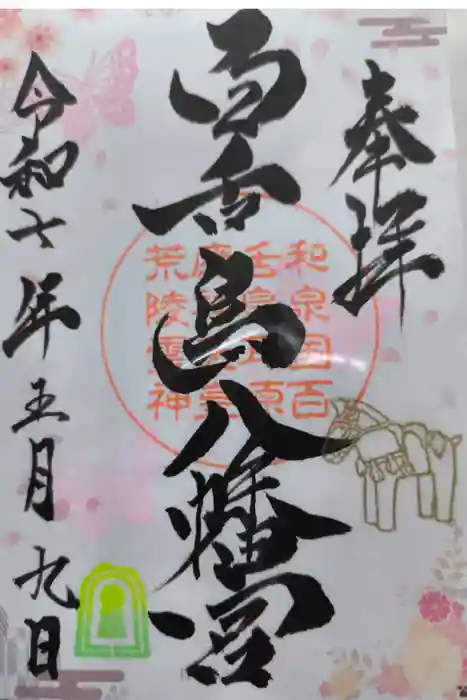 奉拝
百舌鳥八幡宮
令和七年五月九日
和泉国百
舌鳥
荒陵
神